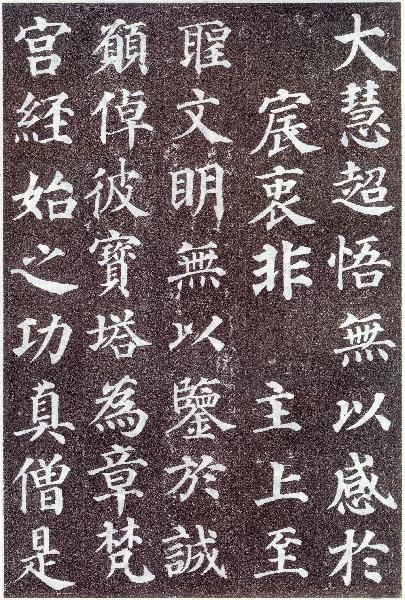 大慧超悟無以感於
宸衷非 主上至
聖文明無以鑒於誠
願倬彼寶塔為章梵
宮経始之功真僧是